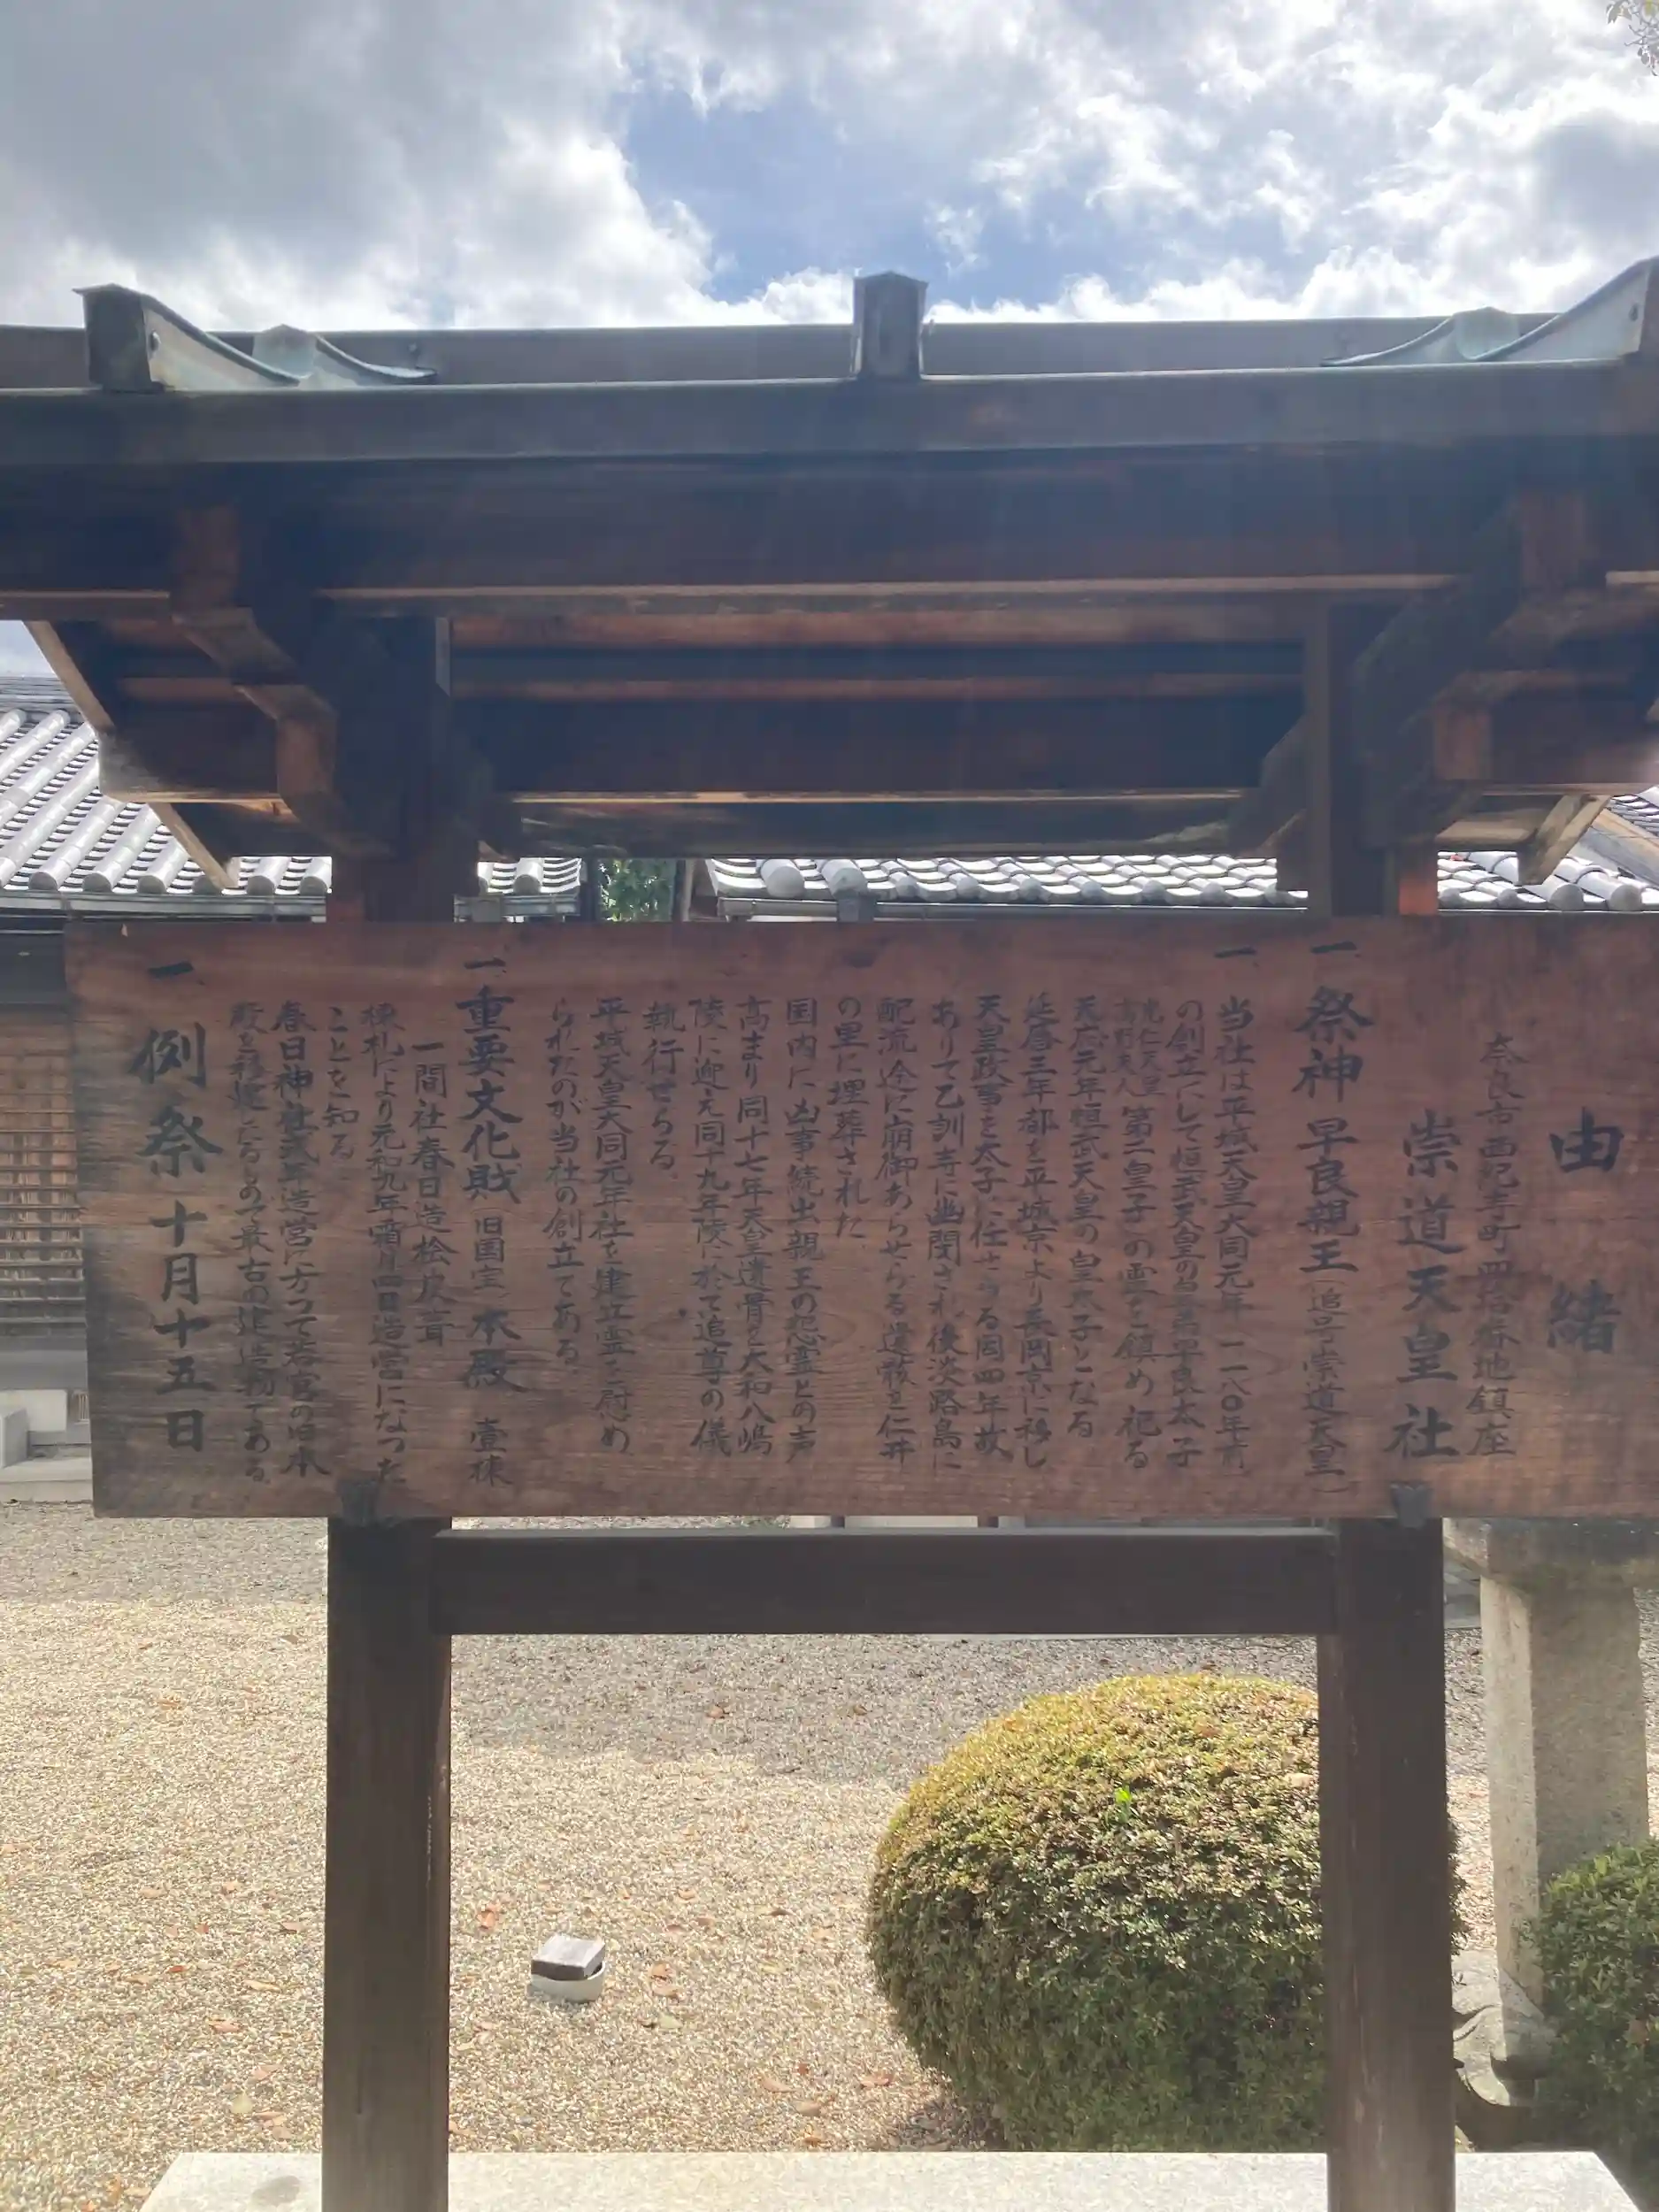 由緒
奈良市西紀寺町四拾番地鎮座
崇道天皇社
一、祭神 早良親王（追号崇道天皇）
一、当社は平城天皇大同元年(一一八〇年前)
の創立にして恒武天皇の皇弟早良太子
光仁天皇
高野夫人 第二皇子の霊を鎮め祀る
天応元年恒武天皇の皇太子となる
延暦三年都を平城京より長岡京に移し
天皇政事を太子に任せらる同四年故
ありて乙訓寺に幽閉され後淡路島に
配流途に崩御あらせらる遺骸を仁井
の里に埋葬された
国内に凶事続出親王の怨霊との声
高まり同十七年天皇遺骨を大和八嶋
陵に迎え同十九年陵に於て追尊の儀
執行せらる
平城天皇大同元年社を建立霊を慰め
られたのが当社の創立である
一、重要文化財（旧国宝）本殿 壹棟
一間社春日造桧皮葺
棟札により元和九年霜月四日造営になった
ことを知る
春日神社式年造営に方つて若宮の旧本
殿を移建したるもので最古の建造物である
一、例祭 十月十五日